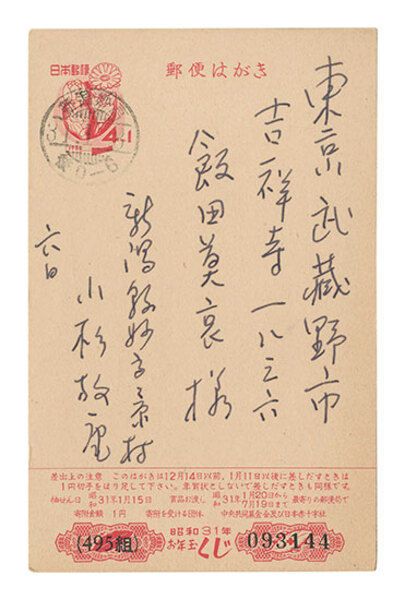 日本郵便
郵便はがき
4+1
東京 武藏野市
吉祥寺一八三六
飯田莫哀様
新潟縣妙高村
小杉放庵
六日
差出上の注意 このはがきは12月14日以前,1月11日以後に差しだすときは
1円切手をはり足して下さい。年賀状としないで差しだすときも同様です。
抽せん日 昭和31年1月15日 賞品お渡し 昭和31年1月20日から7月19日まで 最寄りの郵便局で
寄附金額 1円 寄附を受ける団体 中央共同募金会及び日本赤十字社
(495組) 昭和31年 お年玉くじ 093144